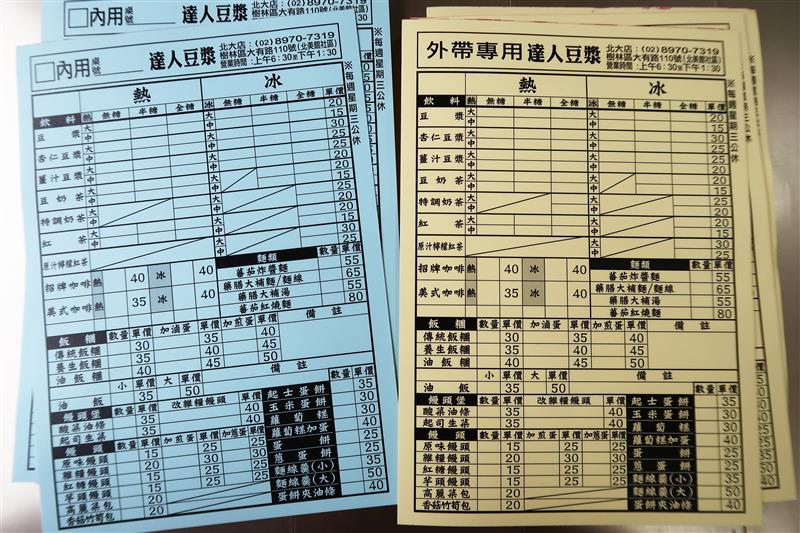 內用 桌號
達人豆漿
北大店:(02)8970-7319
樹林區大有路110號(北美館社區)
內用 桌號
達人豆漿
北大店:(02)8970-7319
樹林區大有路110號(北美館社區)
營業時間:上午6:30至下午1:30
※每週星期三公休
熱 冰
飲料 熱 無糖 半糖 全糖 冰 無糖 半糖 全糖 單價
豆漿 大 大 20
中 中 15
杏仁豆漿 大 大 30
中 中 25
薑汁豆漿 大 大 25
中 中 20
豆奶茶 大 大 25
中 中 20
特調奶茶 大 大 30
中 中 25
紅茶 大 大 20
中 中 15
原汁檸檬紅茶 大 30
中 25
招牌咖啡 熱 40 冰 40
美式咖啡 熱 35 冰 40
麵類 數量 單價
蕃茄炸醬麵 55
藥膳大補麵/麵線 65
藥膳大補湯 55
蕃茄紅燒麵 80
飯糰 數量 單價 加滷蛋 單價 加煎蛋 單價 備註
傳統飯糰 30 35 40
養生飯糰 35 40 45
油飯糰 40 45 50
小 單價 大 單價 備註
油飯 35 50
饅頭堡 數量 單價 改雜糧饅頭 單價
酸菜油條 35 40
起司生菜 35 40
饅頭 數量 單價 加煎蛋 單價 加蔥蛋 單價
原味饅頭 15 25 25
雜糧饅頭 20 30 30
紅糖饅頭 15 25 25
芋頭饅頭 15 25 25
高麗菜包 20
香菇竹筍包 20
數量 單價
起士蛋餅 35
玉米蛋餅 30
蘿蔔糕 30
蘿蔔糕加蛋 40
蛋餅 25
蔥蛋 25
麵線羹(小) 35
麵線羹(大) 50
蛋餅夾油條 40
外帶專用 達人豆漿
北大店:(02)8970-7319
樹林區大有路110號(北美館社區)
營業時間:上午6:30至下午1:30
※每週星期三公休
熱 冰
飲料 熱 無糖 半糖 全糖 冰 無糖 半糖 全糖 單價
豆漿 大 大 20
中 中 15
杏仁豆漿 大 大 30
中 中 25
薑汁豆漿 大 大 25
中 中 20
豆奶茶 大 大 25
中 中 20
特調奶茶 大 大 30
中 中 25
紅茶 大 大 20
中 中 15
原汁檸檬紅茶 大 30
中 25
招牌咖啡 熱 40 冰 40
美式咖啡 熱 35 冰 40
麵類 數量 單價
蕃茄炸醬麵 55
藥膳大補麵/麵線 65
藥膳大補湯 55
蕃茄紅燒麵 80
飯糰 數量 單價 加滷蛋 單價 加煎蛋 單價 備註
傳統飯糰 30 35 40
養生飯糰 35 40 45
油飯糰 40 45 50
小 單價 大 單價 備註
油飯 35 50
饅頭堡 數量 單價 改雜糧饅頭 單價
酸菜油條 35 40
起司生菜 35 40
饅頭 數量 單價 加煎蛋 單價 加蔥蛋 單價
原味饅頭 15 25 25
雜糧饅頭 20 30 30
紅糖饅頭 15 25 25
芋頭饅頭 15 25 25
高麗菜包 20
香菇竹筍包 20
數量 單價
起士蛋餅 35
玉米蛋餅 30
蘿蔔糕 30
蘿蔔糕加蛋 40
蛋餅 25
蔥蛋 25
麵線羹(小) 35
麵線羹(大) 50
蛋餅夾油條 40